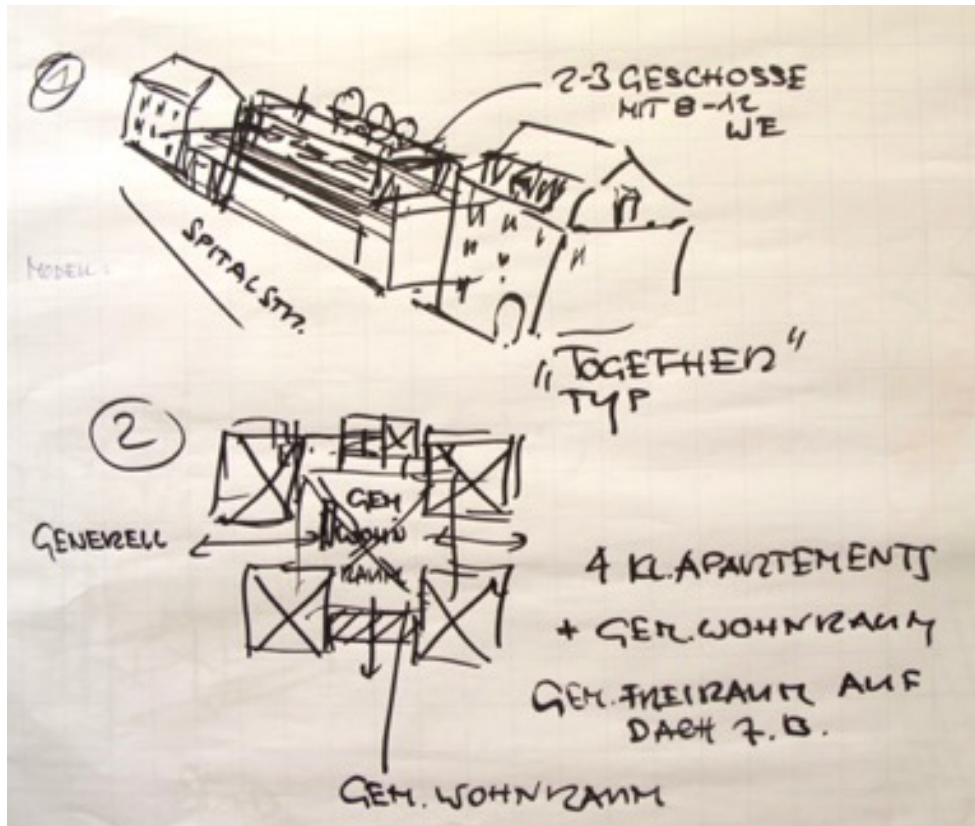 1
2-3 GESCHOSSE
MIT 8-12
WE
SPITALSTR.
MODELL:
"TOGETHER"
TYP
2
GEM
WOHN
RAUM
GENERELL
4 KL. APARTEMENTS
+ GEM. WOHNRAUM
GEM. FREIRAUM AUF
DACH Z.B.
GEM. WOHNRAUM